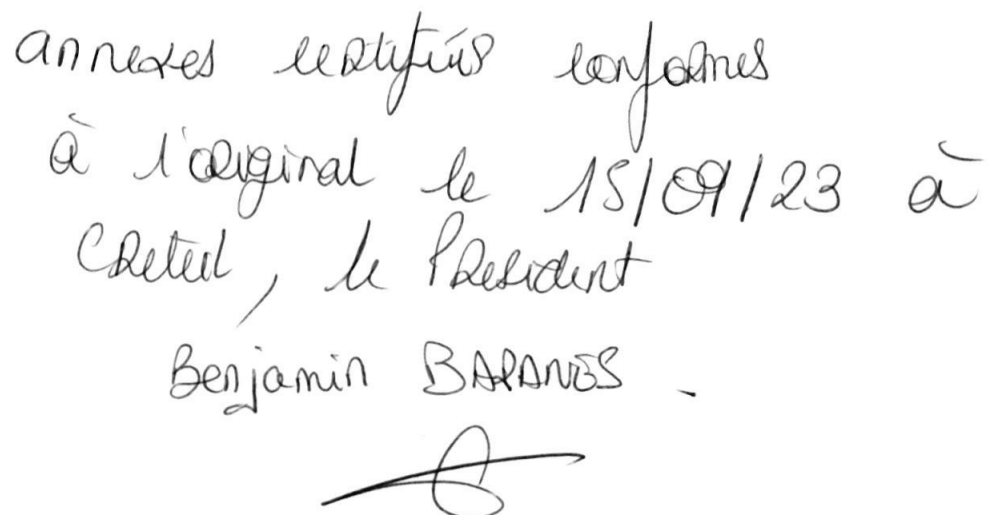 annexes certifiés conformes
à l'original le 15/09/23 à
Creteil, le President
Benjamin BAPANES.